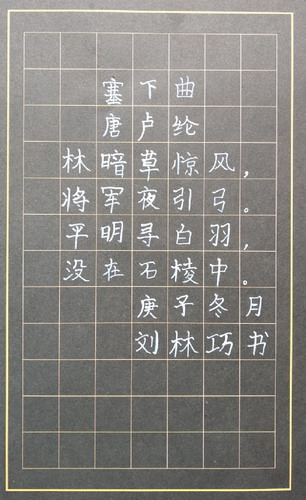 塞下曲
唐卢纶
林暗草惊风，
将军夜引弓。
平明寻白羽，
没在石棱中。
庚子冬月
刘林巧书